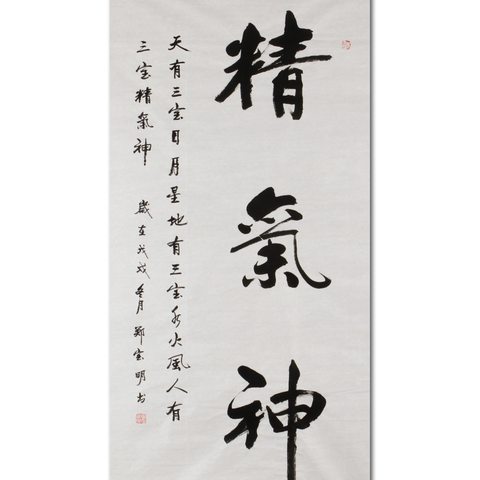 精氣神
天有三宝日月星地有三宝水火風人有
三宝精氣神 歲在戊戌冬月鄭宝明书